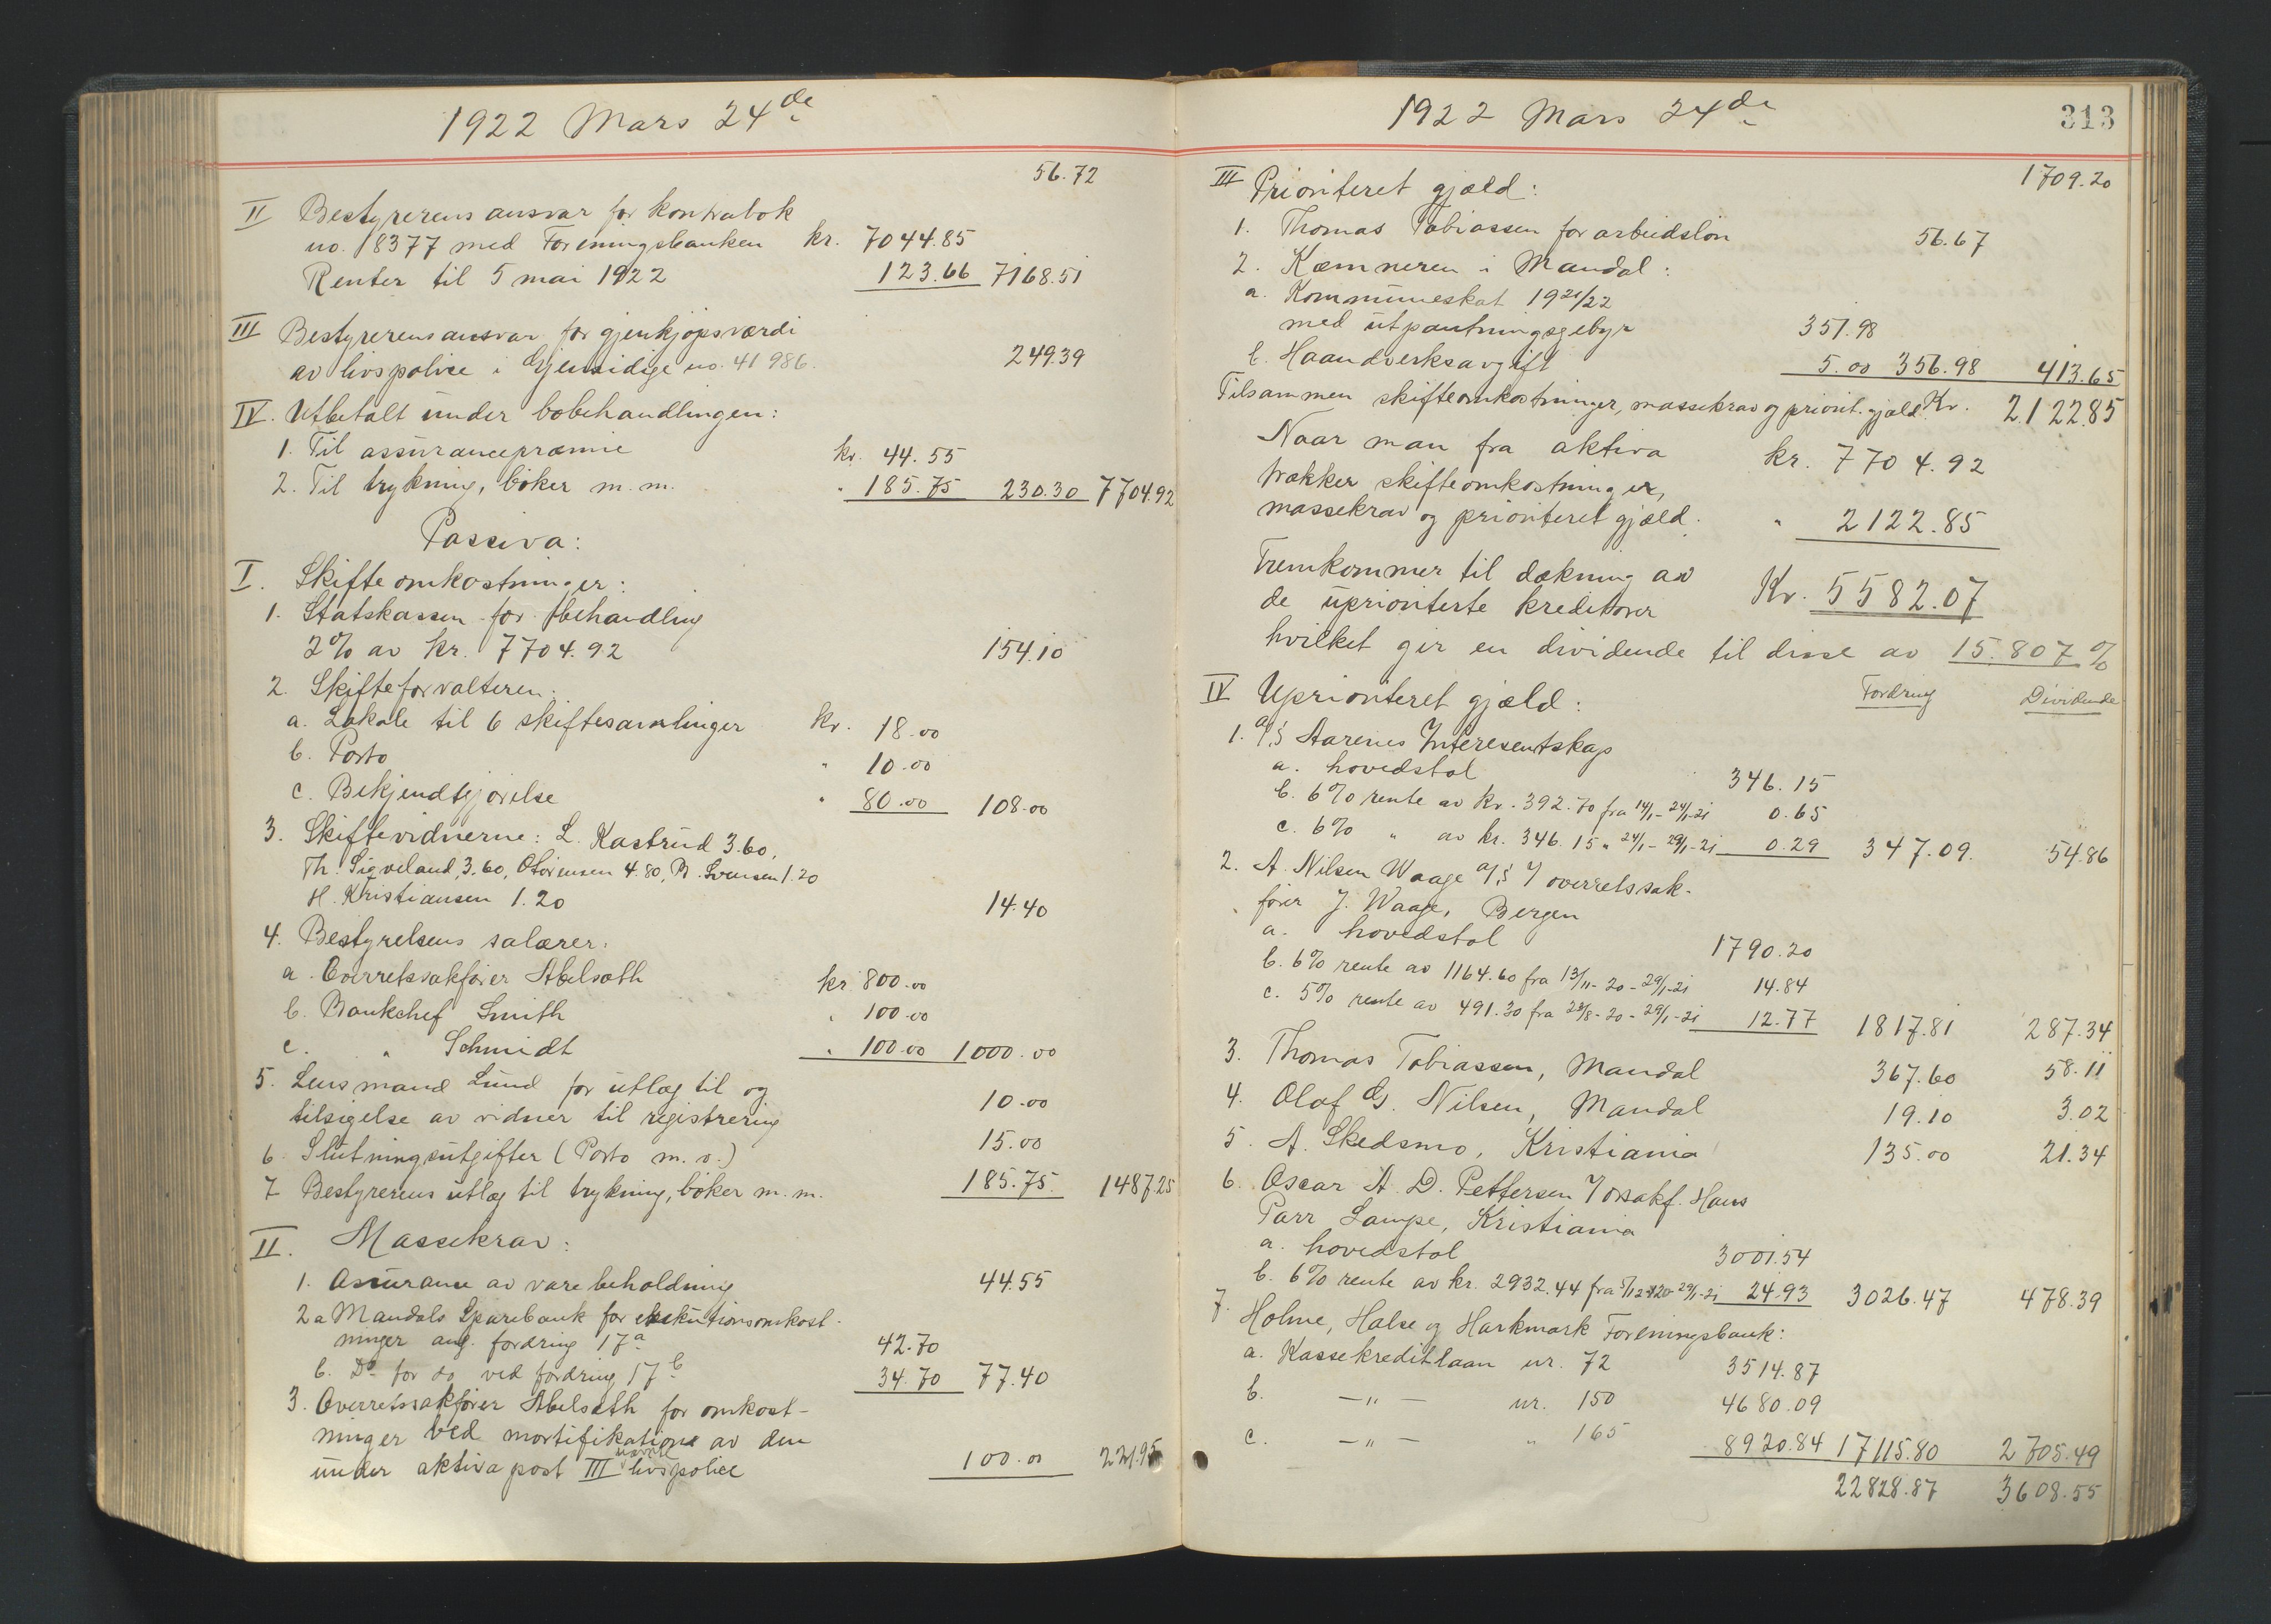 1922 Mars 24de
56.72
II Bestyrerens ansvar for kontrabok
no. 18377 med Foreningsbanken kr. 7044.85
Renter til 5 mai 1922 123.66 7168.51
III Bestyrerens ansvar for gjenkjøpsværdi
av livspolice i Gjensidige no. 41986. 249.39
IV. Utbetalt under bobehandlingen:
1. Til assurancepræmie kr. 44.55
2. Til trykning, bøker m.m. " 185.75 230.30 7704.92
Passiva:
I. Skifteomkostninger:
1. Statskassen for behandling
2% av kr. 7704.92 154.10
2. Skifteforvalteren:
a. Lokale til 6 skiftesamlinger kr. 18.00
b. Porto " 10.00
c. Bekjendtgjørelse " 80.00 108.00
3. Skiftevidnerne: L. Kastrud 3.60,
Th. Sigveland, 3.60, O. Sørensen 4.80, B. Svensen 1.20
H. Kristiansen 1.20 14.40
4. Bestyrelsens salærer:
a. Overretssakfører Abelsæth kr 800.00
b. Bankchef Smith " 100.00
c. " Schmidt " 100.00 1000.00
5. Lensmand Lund for utlæg til og
tilsigelse av vidner til registrering 10.00
6. Slutningsutgifter (Porto m.v.) 15.00
7 Bestyrerens utlæg til trykning, bøker m.m. 185.75. 1487.25
II. Massekrav:
1. Assurance av varebeholdning 44.55
2a Mandals Sparebank for eksekutionsomkost-
ninger ang. fordring 17a 42.70
b. Do for do ved fordring 17b 34.70 77.40
3. Overretssakfører Abelsæth for omkost-
ninger ved mortifikation av den
under aktiva post III nævnte livspolice 100.00 221.95
1922 Mars 24de 313
1709.20
III Prioriteret gjæld:
1. Thomas Tobiassen for arbeidsløn 56.67
2. Kæmneren i Mandal:
a. Kommuneskat 1921/22
med utpantningsgebyr 351.98
b. Haandverksavgift 5.00 356.98 413.65
Tilsammen skifteomkostninger, massekrav og priorit. gjæld Kr. 2122.85
Naar man fra aktiva kr. 7704.92
trækker skifteomkostninger,
massekrav og prioriteret gjæld. " 2122.85
Fremkommer til dækning av
de upriorterte kreditorer Kr. 5582.07
hvilket gir en dividende til disse av 15.807%
IV Uprioriteret gjæld: Fordring Dividende
1. A/S Aarenes Interesentskap
a. hovedstol 346.15
b. 6% rente av kr. 392.70 fra 14/1-24/1-21 0.65
c. 6% " av kr. 346.15 " 24/1-29/1-21 0.29 347.09. 54.86
2. A. Nilsen Waage A/S v/ overretssak-
fører J. Waage, Bergen
a. hovedstol 1790.20
b. 6% rente av 1164.60 fra 13/11-20-29/1-21 14.84
c. 5% rente av 491.30 fra 23/8-20-29/1-21 12.77 1817.81 287.34
3. Thomas Tobiassen, Mandal 367.60 58.11
4. Olaf G. Nilsen, Mandal 19.10 3.02
5. A. Skedsmo, Kristiania 135.00 21.34
6. Oscar A. D. Pettersen v/ orsakf. Hans
Parr Lampe, Kristiania
a. hovedstol 3001.54
b. 6% rente av kr. 2932.44 fra 9/12-20-29/1-21 24.93 3026.47 478.39
7. Holme, Halse og Harkmark Foreningsbank:
a. Kassekreditlaan nr. 72 3514.87
b. —"— nr. 150 4680.09
c. —"— " 165 8920.84 17115.80 2705.49
22828.87 3608.55